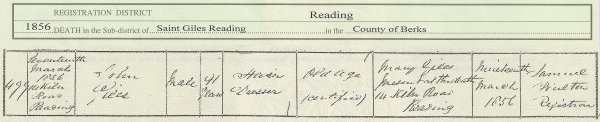 REGISTRATION DISTRICT Reading
1856 DEATH in the Sub-district of Saint Giles Reading in the County of Berks
Seventeenth
March
1856
Road
Reading
John
Giles
Male
Years
Hair
Dresser
Old Age
(certified)
Mary Giles
Present at the death
14 Kiln Road
Reading
Nineteenth
March
1856
Samuel
Registrar